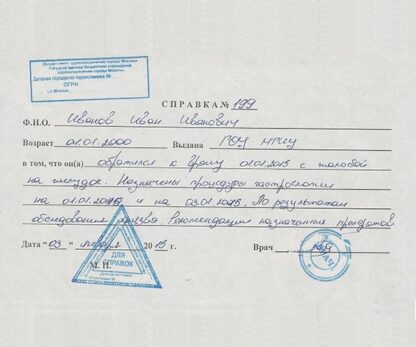 Департамент здравоохранения города Москвы
Государственное бюджетное учреждение
здравоохранения города Москвы
Детская городская поликлиника №
ОГРН
г. Москва
СПРАВКА № 199
Ф.И.О. Иванов Иван Иванович
Возраст 01.01.2000 Выдана РОУ МРИУ
в том, что он(а) обратился к врачу 01.01.2015 с жалобой
на желудок. Назначены процедуры гастроскопии
на 01.01.2015 и на 03.01.2015. По результатам
обследования язва. Рекомендации назначения препаратов
Дата "03" января 2015 г. Врач
М. П.
ДЛЯ
СПРАВОК
ВРАЧ